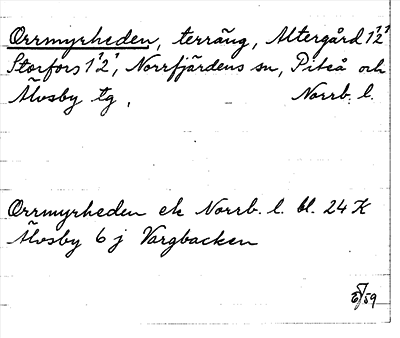 Orrmyrheden, terräng, Altergård 1¹2¹
Storfors 1¹2¹, Norrfjärdens sn, Piteå och
Älvsby tg, Norrb. l.
Orrmyrheden ek Norrb. l. bl. 24 K
Älvsby 6 j Vargbacken
/59